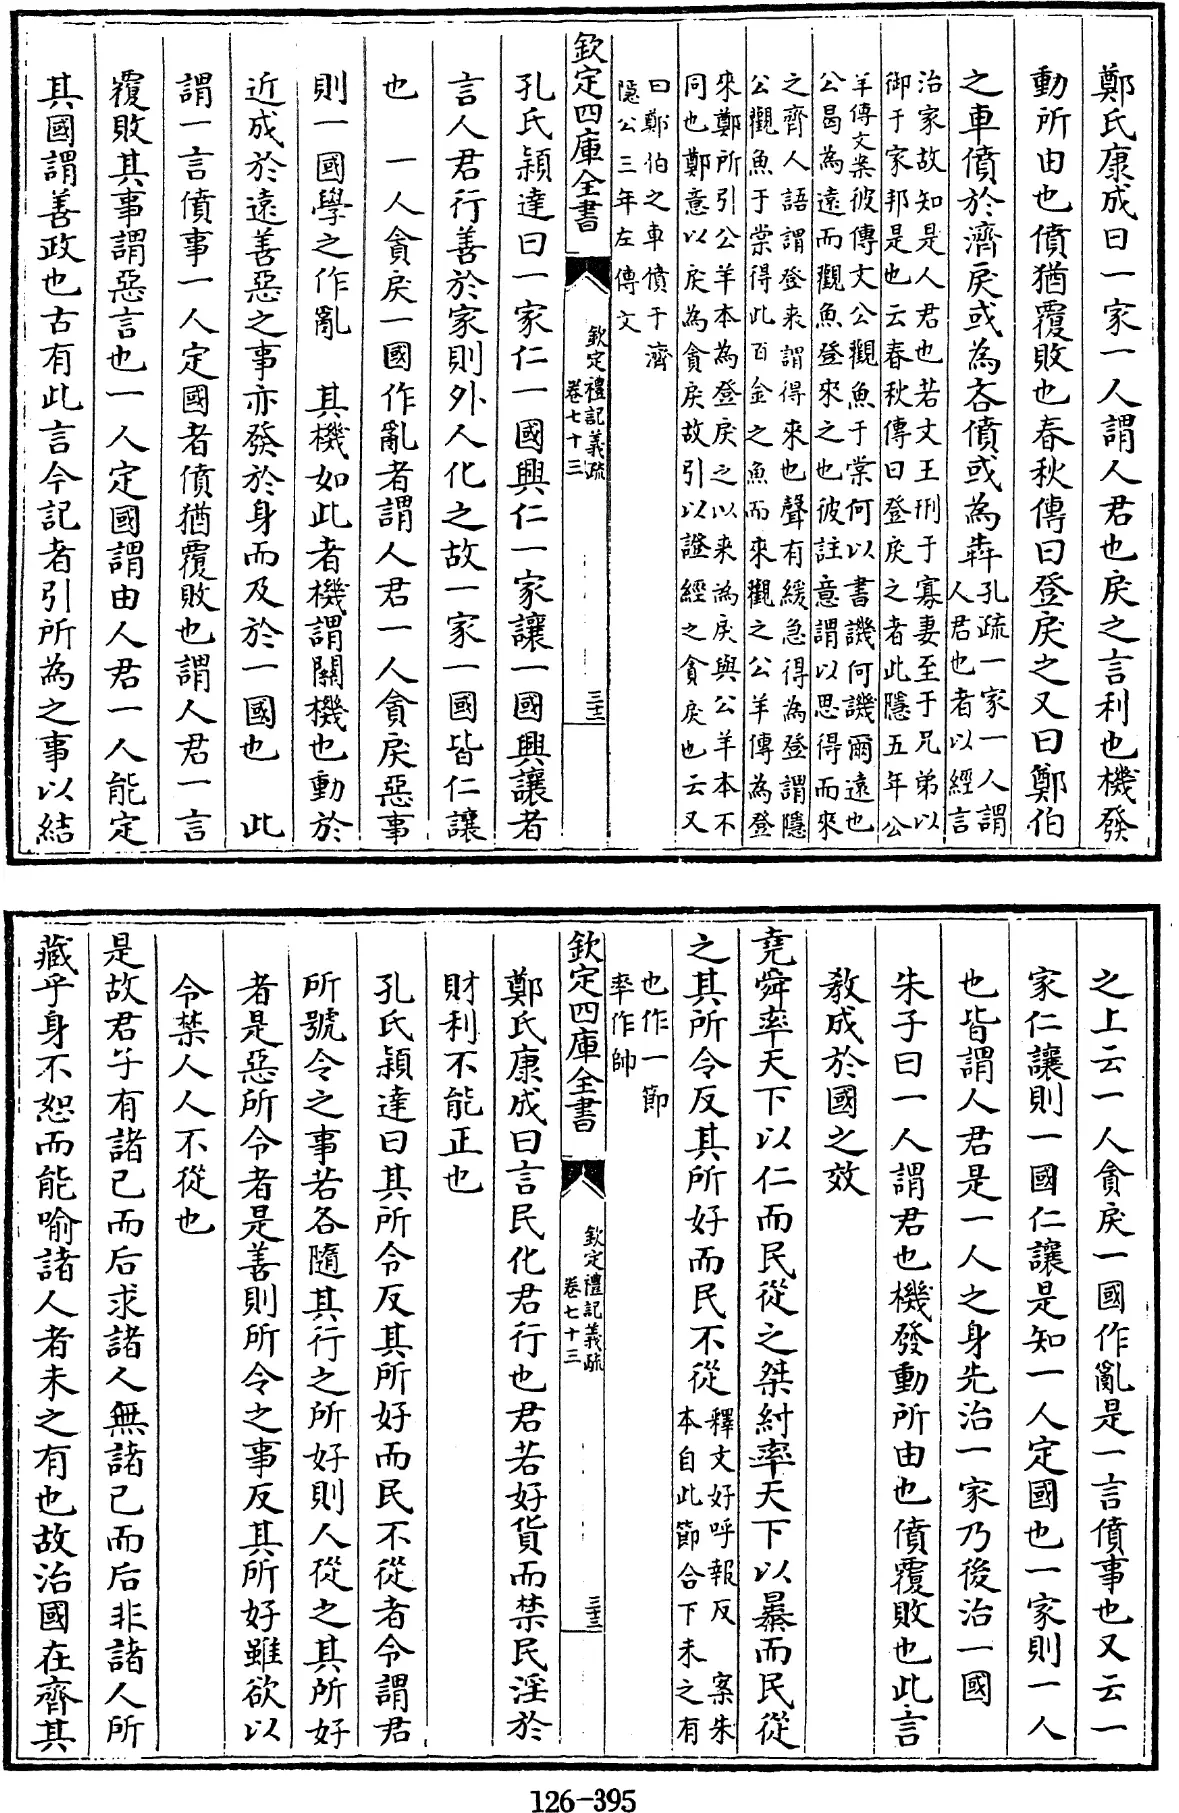 鄭氏康成曰一家一人謂人君也戾之言利也機發
動所由也僨猶覆敗也春秋傳曰登戾之又曰鄭伯
之車僨於濟戾或為吝僨或為犇
孔疏一家一人謂
人君也者以經言
治家故知是人君也若文王刑于寡妻至于兄弟以
御于家邦是也云春秋傳曰登戾之者此隱五年公
羊傳文案彼傳文公觀魚于棠何以書譏何譏爾遠也
公曷為遠而觀魚登來之也彼註意謂以思得而來
之齊人語謂登來謂得來也聲有緩急得為登謂隱
公觀魚于棠得此百金之魚而來觀之公羊傳為登
來鄭所引公羊本為登戾之以來為戾與公羊本不
同也鄭意以戾為貪戾故引以證經之貪戾也云又
曰鄭伯之車僨于濟
隱公三年左傳文
欽定四庫全書
欽定禮記義疏
卷七十三
三十二
孔氏穎達曰一家仁一國興仁一家讓一國興讓者
言人君行善於家則外人化之故一家一國皆仁讓
也 一人貪戾一國作亂者謂人君一人貪戾惡事
則一國學之作亂 其機如此者機謂關機也動於
近成於遠善惡之事亦發於身而及於一國也 此
謂一言僨事一人定國者僨猶覆敗也謂人君一言
覆敗其事謂惡言也一人定國謂由人君一人能定
其國謂善政也古有此言今記者引所為之事以結
之上云一人貪戾一國作亂是一言僨事也又云一
家仁讓則一國仁讓是知一人定國也一家則一人
也皆謂人君是一人之身先治一家乃後治一國
朱子曰一人謂君也機發動所由也僨覆敗也此言
教成於國之效
堯舜率天下以仁而民從之桀紂率天下以暴而民從
之其所令反其所好而民不從
釋文好呼報反 案朱
本自此節合下未之有
也作一節
率作帥
欽定四庫全書
欽定禮記義疏
卷七十三
三十三
鄭氏康成曰言民化君行也君若好貨而禁民淫於
財利不能正也
孔氏穎達曰其所令反其所好而民不從者令謂君
所號令之事若各隨其行之所好則人從之其所好
者是惡所令者是善則所令之事反其所好雖欲以
令禁人人不從也
是故君子有諸己而后求諸人無諸己而后非諸人所
藏乎身不恕而能喻諸人者未之有也故治國在齊其
126-395